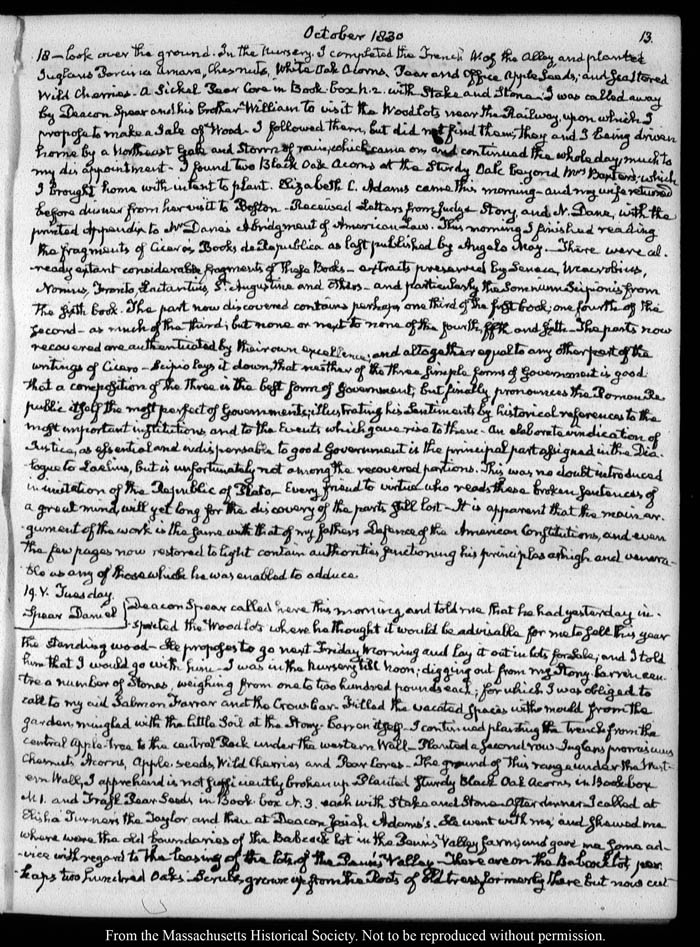 October 1830
13.
18 — look over the ground. In the Nursery. I completed the Trench N. of the Alley, and planted
Juglans Porcina Amara, Chesnuts, White Oak Acorns, Pear and Office Apple Seeds, and Sea stored
Wild Cherries. A Sickel Pear Core in Book-box N. 2. with Stake and Stone. I was called away
by Deacon Spear and his brother William to visit the Woodlots near the Railway, upon which I
propose to make a Sale of Wood. I followed them, but did not find them; they and I being driven
home by a Northeast Gale and Storm of rain, which came on, and continued the whole day, much to
my disappointment. I found two Black Oak Acorns at the Sturdy Oak beyond Mrs Baxter's, which
I brought home with intent to plant. Elizabeth C. Adams came this morning — and my wife returned
before dinner from her visit to Boston — Received Letters from Judge Story, and N. Dane, with the
printed Appendix to Mr Dane's Abridgment of American Law. This morning I finished reading
the fragments of Cicero's Books de Republica as last published by Angelo May. There were al-
ready extant considerable fragments of these Books — extracts preserved by Seneca, Macrobius,
Nonius, Fronto, Lactantius, St. Augustine and others — and particularly the Somnium Scipionis from
the sixth book. The part now discovered contains perhaps one third of the first book; one fourth of the
second — as much of the third; but none or next to none of the fourth, fifth and sixth — The parts now
recovered are authenticated by their own excellence, and altogether equal to any other part of the
writings of Cicero — Scipio lays it down, that neither of the three simple forms of Government is good:
that a composition of the three is the best form of Government, but finally pronounces the Roman Re-
public itself the most perfect of Governments; illustrating his Sentiments by historical references to the
most important institutions, and to the Events which gave rise to them. An elaborate vindication of
Justice, as essential and indispensable to good Government is the principal part assigned in the Dia-
logue to Laelius, but is unfortunately not among the recovered portions. This was no doubt introduced
in imitation of the Republic of Plato. Every friend to virtue who reads these broken sentences of
a great mind, will yet long for the discovery of the parts still lost — It is apparent that the main ar-
gument of the work is the same with that of my father's Defence of the American Constitutions, and even
the few pages now restored to light contain authorities sanctioning his principles as high and venera-
ble as any of those which he was enabled to adduce.
19. V. Tuesday.
Spear Daniel
Deacon Spear called here this morning and told me that he had yesterday in-
spected the Woodlots where he thought it would be advisable for me to sell this year
the standing wood — He proposes to go next Friday Morning and lay it out in lots for sale; and I told
him that I would go with him — I was in the Nursery till Noon; digging out from my Stony-barren cen-
tre a number of Stones, weighing from one to two hundred pounds each; for which I was obliged to
call to my aid Salmon Farrar and the Crow bar. Filled the vacated spaces with mould from the
garden, mingled with the little Soil at the Stony-barren itself. I continued planting the Trench from the
central Apple-tree to the central Rock under the western Wall. Planted a second row Juglans
Chesnuts, Acorns, Apple-seeds, Wild Cherries and Pear Cores. The ground of this range under the West-
ern Wall, I apprehend is not sufficiently broken up. Planted Sturdy Black Oak Acorns in Book-box
M. 1. and Pear Seeds in Book-box N. 3. each with Stake and Stone. After dinner I called at
Elisha Turner's the Taylor, and then at Deacon Josiah Adams's. He went with me, and shewed me
where were the old boundaries of the Babcock lot in the Penn's Valley farm; and gave me some ad-
vice with regard to the leasing of the lots of the Penn's Valley — There are on the Babcock lot, per-
haps two hundred Oaks — Scrubs, grown up from the Roots of old trees formerly there but now cut
From the Massachusetts Historical Society. Not to be reproduced without permission.